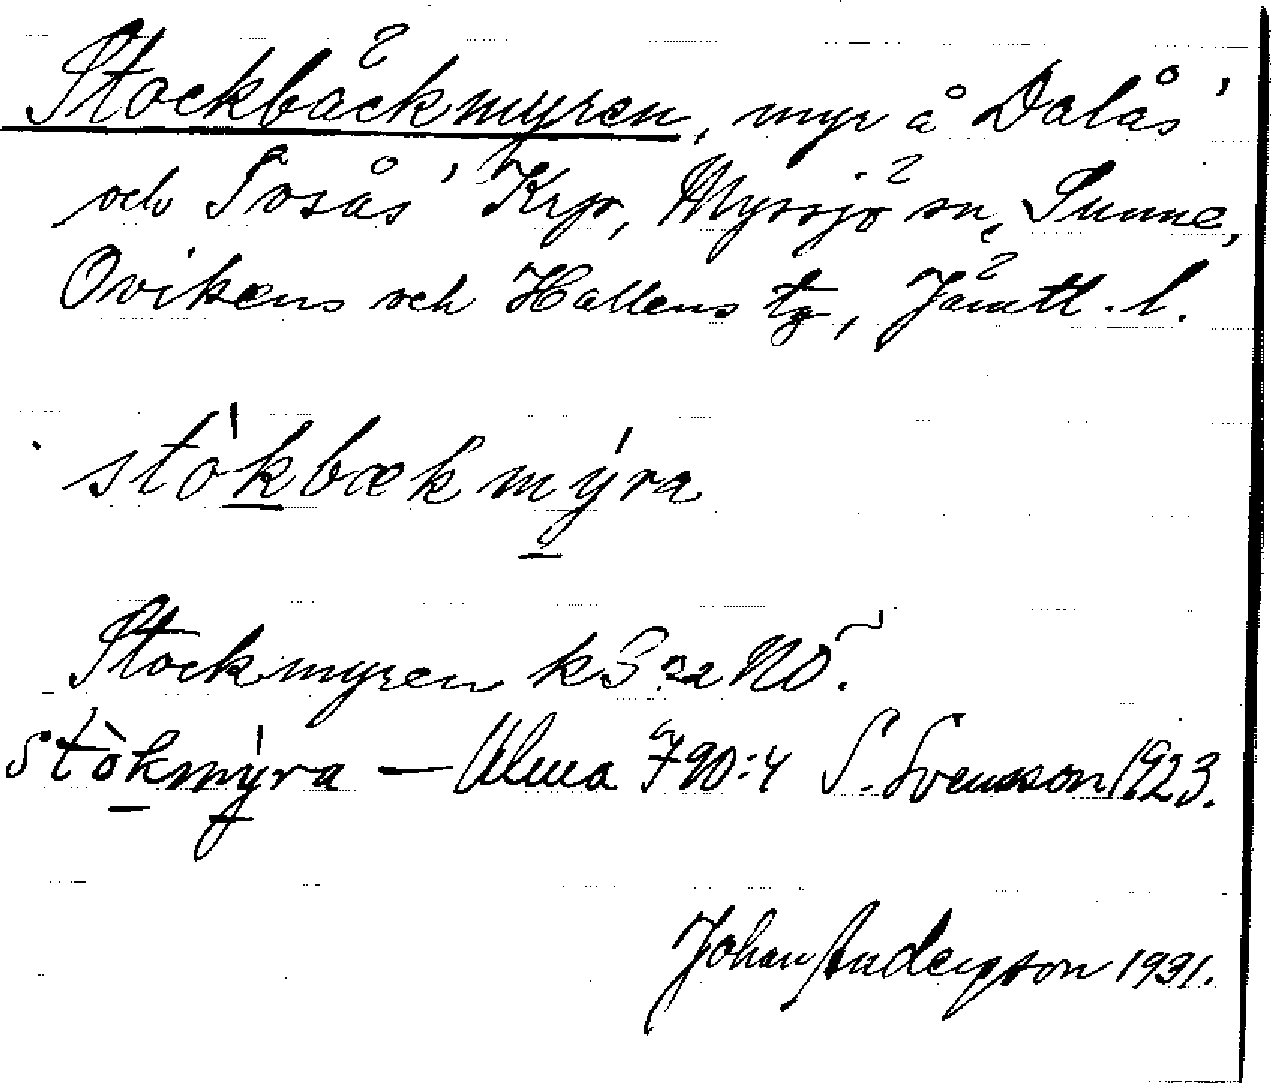 Stockbäckmyren, myr å Dalås'
och Tosås' Krp, Myssjö sn, Sunne,
Ovikens och Hallens tg, Jämtl. l.
stòkbækmýra
Stockmyren k S 32 NO.
stòkmýra — Ulma 790:4 S. Svensson 1923.
Johan Anderson 1931.